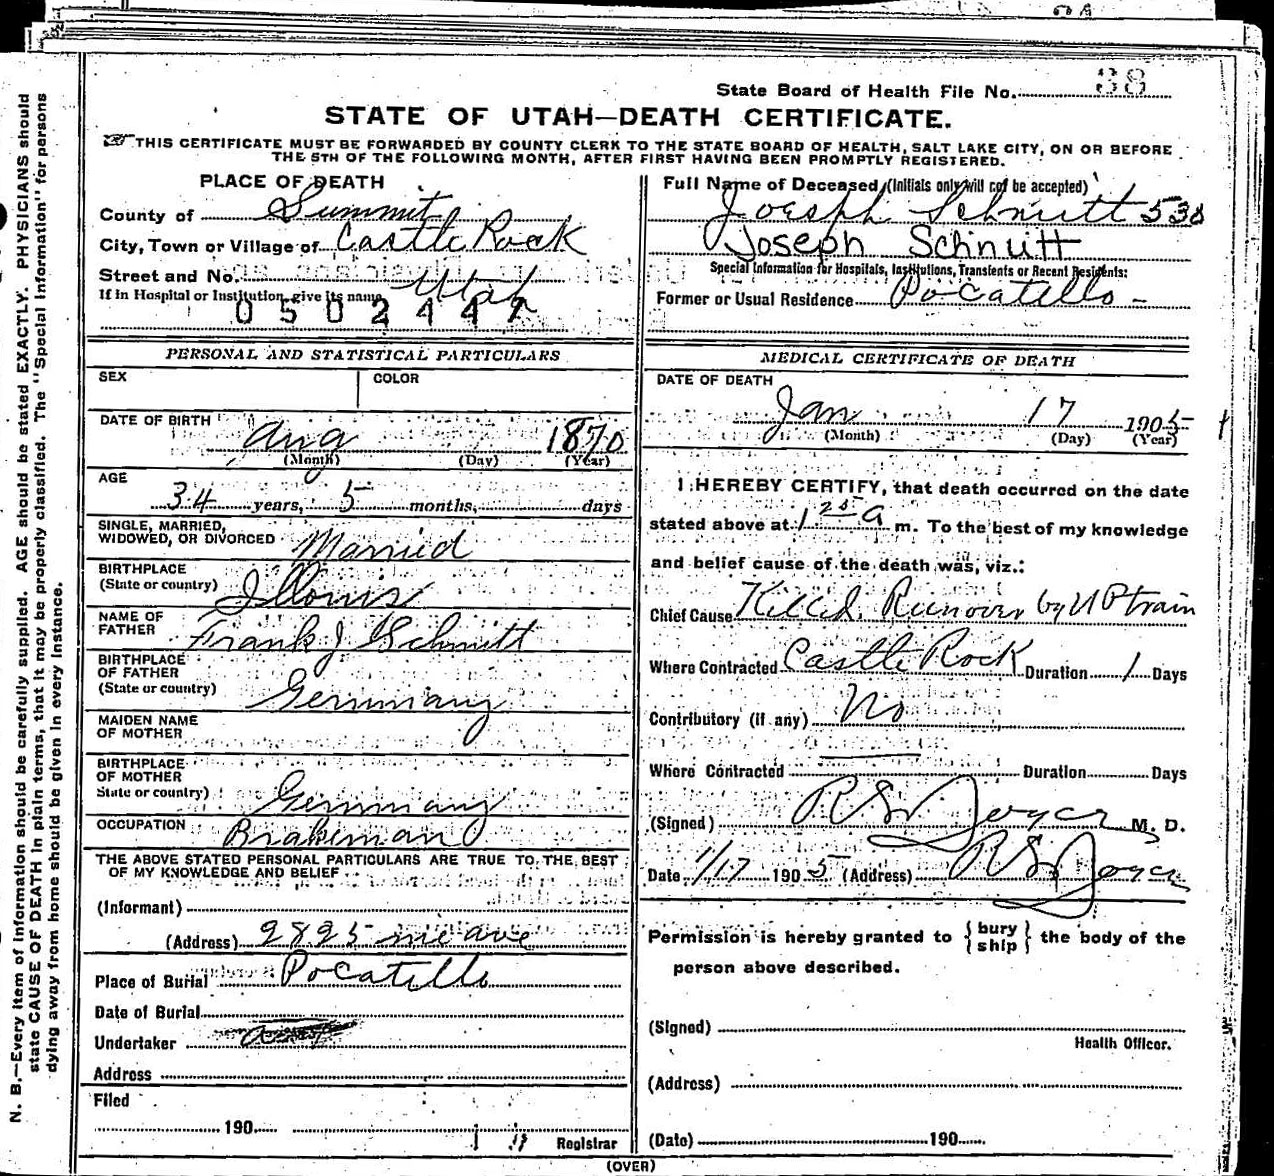 State Board of Health File No. 38
STATE OF UTAH—DEATH CERTIFICATE.
THIS CERTIFICATE MUST BE FORWARDED BY COUNTY CLERK TO THE STATE BOARD OF HEALTH, SALT LAKE CITY, ON OR BEFORE
THE 5TH OF THE FOLLOWING MONTH, AFTER FIRST HAVING BEEN PROMPTLY REGISTERED.
PLACE OF DEATH
County of Summit
City, Town or Village of Castle Rock
Street and No. Utah
If in Hospital or Institution, give its name
0502447
Full Name of Deceased (Initials only will not be accepted)
Joesph Schmitt 538
Joseph Schnutt
Special Information for Hospitals, Institutions, Transients or Recent Residents:
Former or Usual Residence Pocatello -
PERSONAL AND STATISTICAL PARTICULARS
SEX
COLOR
DATE OF BIRTH
Aug 1870
(Month) (Day) (Year)
AGE
34 years, 5 months, days
SINGLE, MARRIED,
WIDOWED, OR DIVORCED Married
BIRTHPLACE
(State or country) Illonis
NAME OF
FATHER Frank J Schmitt
BIRTHPLACE
OF FATHER
(State or country) Germany
MAIDEN NAME
OF MOTHER
BIRTHPLACE
OF MOTHER
State or country) Germany
OCCUPATION Brakeman
THE ABOVE STATED PERSONAL PARTICULARS ARE TRUE TO THE BEST
OF MY KNOWLEDGE AND BELIEF
(Informant)
(Address) 2825 ave
Place of Burial Pocatello
Date of Burial
Undertaker
Address
Filed
190
Registrar
MEDICAL CERTIFICATE OF DEATH
DATE OF DEATH
Jan 17 1905
(Month) (Day) (Year)
I HEREBY CERTIFY, that death occurred on the date
stated above at 1 25 a m. To the best of my knowledge
and belief cause of the death was, viz.:
Chief Cause Killed. Runover by UP train
Where Contracted Castle Rock Duration 1 Days
Contributory (if any) No
Where Contracted Duration Days
(Signed) R S Joyce M. D.
Date 1/17 1905 (Address) R S Joyce
Permission is hereby granted to {bury ship} the body of the
person above described.
(Signed)
Health Officer.
(Address)
(Date) 190
(OVER)
N. B.—Every item of information should be carefully supplied. AGE should be stated EXACTLY. PHYSICIANS should
state CAUSE OF DEATH in plain terms, that it may be properly classified. The "Special Information" for persons
dying away from home should be given in every instance.